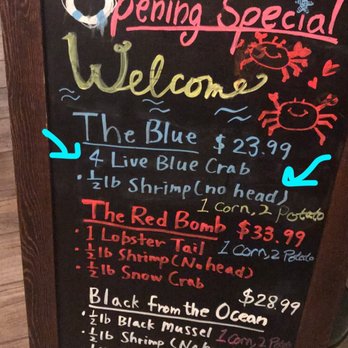 Opening Special
Welcome
The Blue $23.99
4 Live Blue Crab
· ½lb Shrimp (no head)
1 corn, 2 Potato
The Red Bomb $33.99
· 1 Lobster Tail 1 corn, 2 Potato
· ½lb Shrimp (No head)
· ½lb Snow Crab
$28.99
Black from the Ocean
· ½lb Black Mussel 1 corn, 2
· ½lb Shrimp (No